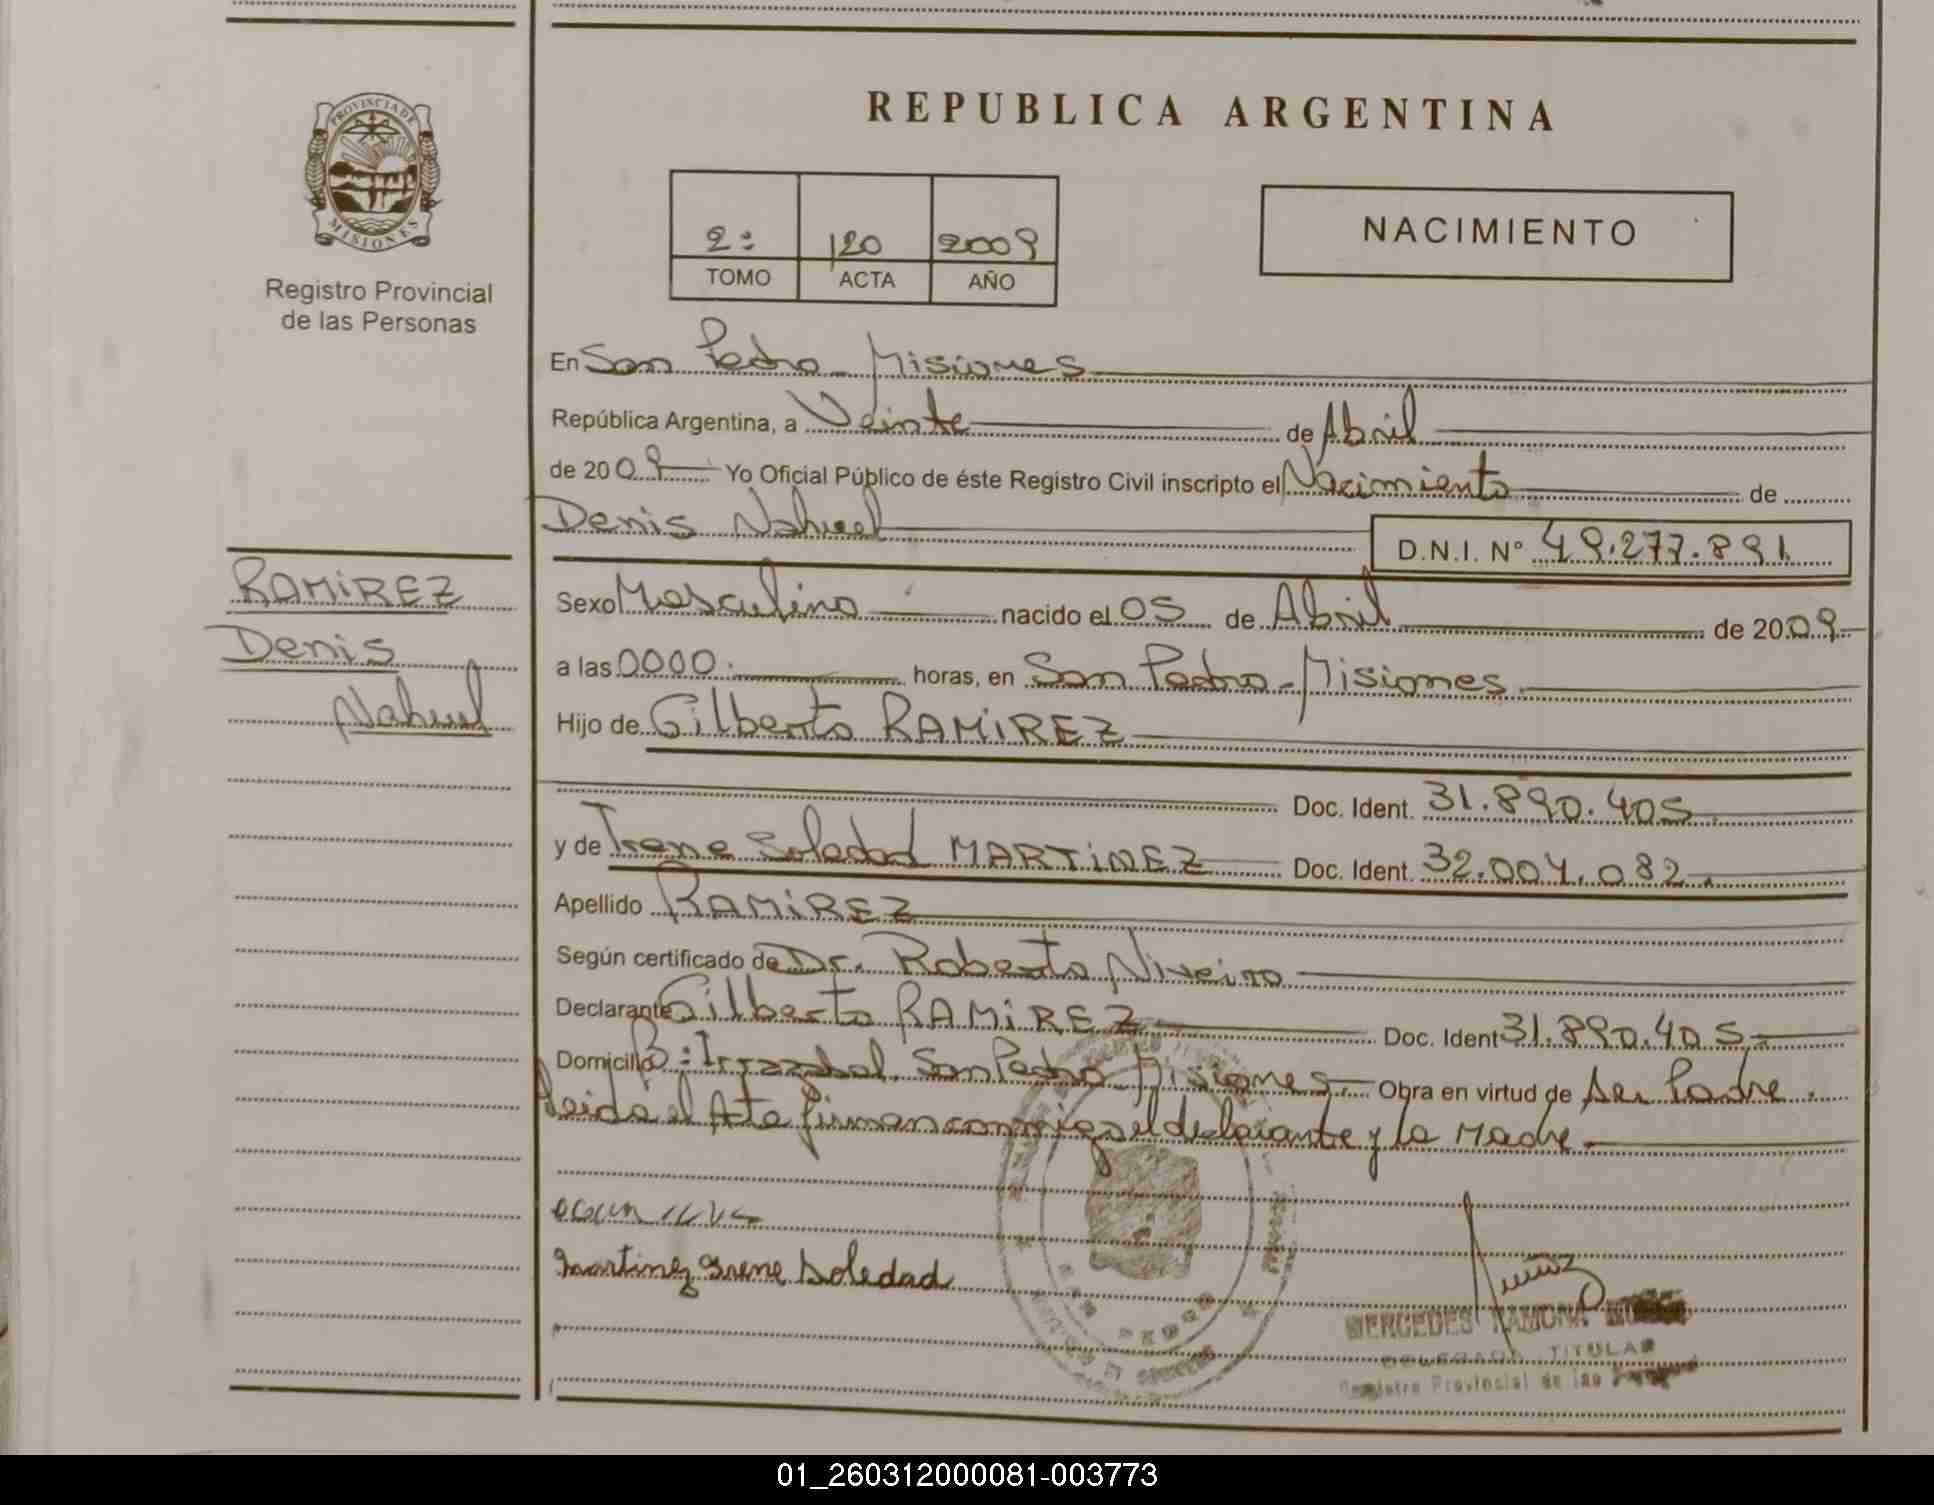 REPUBLICA ARGENTINA
PROVINCIA DE
MISIONES
Registro Provincial
de las Personas
2º 120 2009
TOMO ACTA AÑO
NACIMIENTO
En San Pedro - Misiones
República Argentina, a Veinte de Abril
de 2009 Yo Oficial Público de éste Registro Civil inscripto el Nacimiento de
Denis Nahuel D.N.I. Nº 49.277.891
RAMIREZ
Denis
Nahuel
Sexo Masculino nacido el 05 de Abril de 2009
a las 0000 horas, en San Pedro - Misiones
Hijo de Gilberto RAMIREZ
Doc. Ident. 31.890.405
y de Irene Soledad MARTINEZ Doc. Ident. 32.004.082
Apellido RAMIREZ
Según certificado de Dr. Roberto Niveiro
Declarante Gilberto RAMIREZ Doc. Ident 31.890.405
Domicilio B: Irrazabal. San Pedro Misiones. Obra en virtud de ser Padre.
Leida el Acta firman conmigo el declarante y la Madre
Martinez Irene Soledad
MERCEDES RAMONA
DELEGADA TITULAR
Registro Provincial de las
01_260312000081-003773